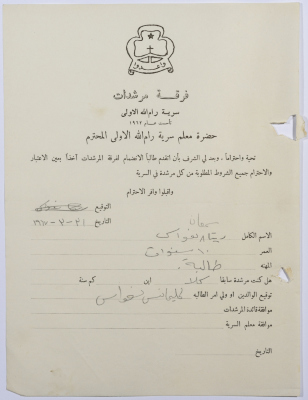 وأعدوا
فرقة مرشدات
سرية رام الله الاولى
تأسست عام ١٩٦٢
حضرة معلم سرية رام الله الاولى المحترم
تحية واحتراماً، وبعد لي الشرف بأن اتقدم طالباً الانضمام لفرقة المرشدات آخذاً بعين الاعتبار
والاحترام جميع الشروط المطلوبة من كل مرشدة في السرية
واقبلوا وافر الاحترام
التوقيع
التاريخ
الاسم الكامل
العمر ١٠ سنوات
المهنه طالبة
هل كنت مرشدة سابقا كلا اين كم سنة
توقيع الوالدين أو ولي امر الطالبه
موافقة قائدة المرشدات
موافقة معلم السرية
التاريخ